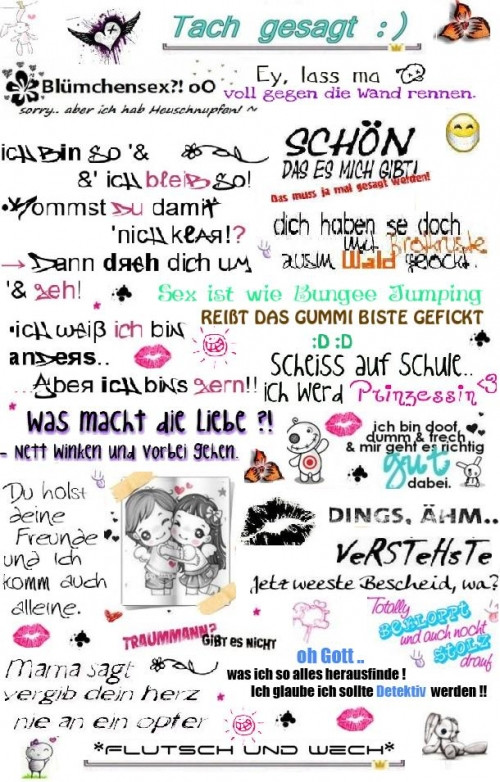 Tach gesagt :)
Blümchensex?! oO
sorry.. aber ich hab Heuschnupfen! ~
Ey, lass ma
voll gegen die Wand rennen.
ich bin so '&
&' ich bleib so!
Kommst du damit
'nich klar!?
→ Dann dreh dich um
'& geh!
SCHÖN
DAS ES MICH GIBT!
Das muss ja mal gesagt werden!
dich haben se doch
mit Brotkruste
ausm Wald gelockt.
Sex ist wie Bungee Jumping
REIßT DAS GUMMI BISTE GEFICKT
•ich weiß ich bin
anders..
...Aber ich bins gern!!
:D :D
Scheiss auf Schule..
ich werd Prinzessin <3
Was macht die Liebe ?!
- Nett winken und vorbei gehen.
ich bin doof,
dumm & frech
& mir geht es richtig
gut
dabei.
Du holst
deine
Freunde
und Ich
komm auch
alleine.
DINGS, ÄHM..
VeRSTeHsTe
Jetz weeste Bescheid, wa?
TRAUMMANN?
GIBT ES NICHT
Totally
BEKLOPPT
und auch noch
STOLZ
drauf
Mama sagt
vergib dein herz
nie an ein opfer
oh Gott ..
was ich so alles herausfinde !
Ich glaube ich sollte Detektiv werden !!
*FLUTSCH UND WECH*